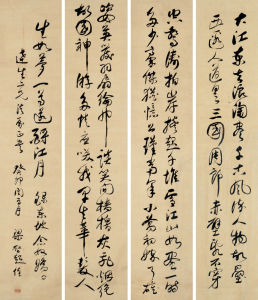 大江東去浪淘盡千古風流人物故壘
西邊人道是三國周郎赤壁亂石穿
空驚濤拍岸捲起千堆雪江山如畫一時
多少豪傑遙想公瑾當年小喬初嫁了雄
姿英發羽扇綸巾談笑間檣櫓灰飛煙滅
故國神遊多情應笑我早生華髮人
生如夢一尊還酹江月 錄東坡念奴嬌
生二兄法家正 癸卯 月 梁